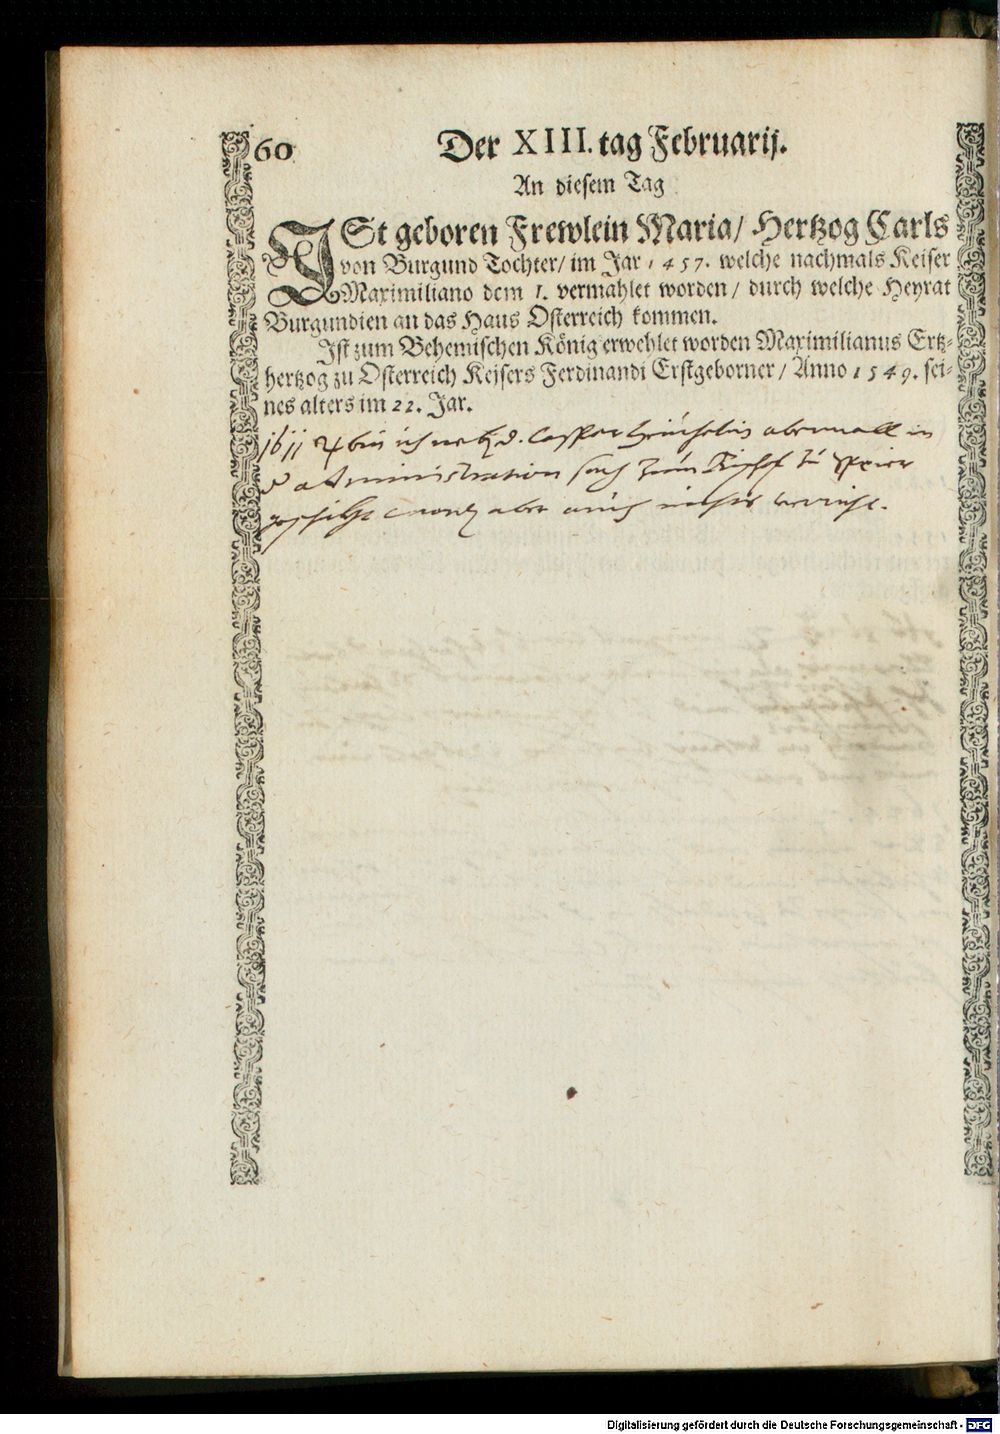 60
Der XIII. tag Februarij.
An diesem Tag
ISt geboren Frewlein Maria/ Hertzog Carls
von Burgund Tochter/ im Jar 1457. welche nachmals Keiser
Maximiliano dem 1. vermahlet worden/ durch welche Heyrat
Burgundien an das Haus Osterreich kommen.
Ist zum Behemischen König erwehlet worden Maximilianus Ertz-
hertzog zu Osterreich Keisers Ferdinandi Erstgeborner/ Anno 1549. sei-
nes alters im 22. Jar.
1611 ♃ bin ich Casspar abermall in
administration sach zum Bischof zu Speier
geschickt aber nichts verricht.
Digitalisierung gefördert durch die Deutsche Forschungsgemeinschaft - DFG